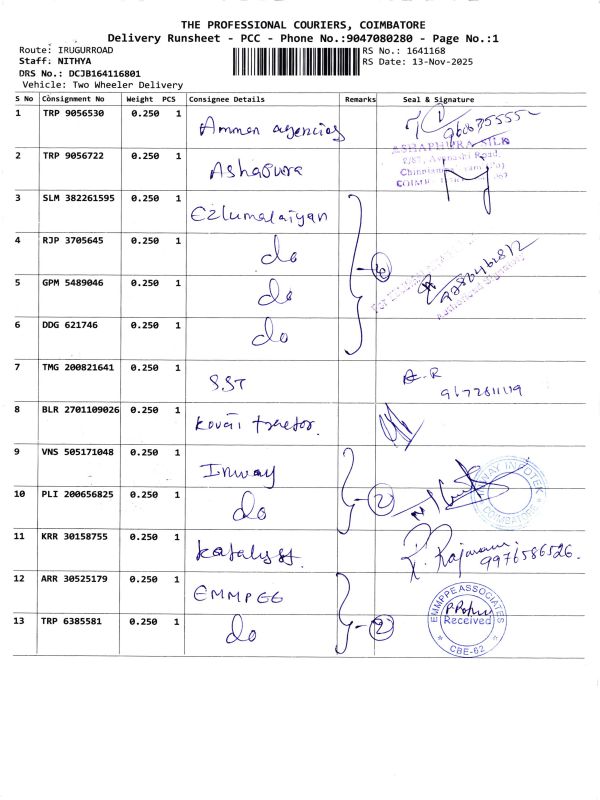 THE PROFESSIONAL COURIERS, COIMBATORE
Delivery Runsheet - PCC - Phone No.:9047080280 - Page No.:1
Route: IRUGURROAD RS No.: 1641168
Staff: NITHYA RS Date: 13-Nov-2025
DRS No.: DCJB164116801
Vehicle: Two Wheeler Delivery
S No Consignment No Weight PCS Consignee Details Remarks Seal & Signature
1 TRP 9056530 0.250 1 Amman agencies
2 TRP 9056722 0.250 1 Ashapura ASHAPURA SILK
3 SLM 382261595 0.250 1 Ezlumalaiyan
4 RJP 3705645 0.250 1 do 4
5 GPM 5489046 0.250 1 do
6 DDG 621746 0.250 1 do
7 TMG 200821641 0.250 1 SST A.R
8 BLR 2701109026 0.250 1 Kovai tractor.
9 VNS 505171048 0.250 1 Inway
10 PLI 200656825 0.250 1 do 2 INWAY INFOTEK COIMBATORE
11 KRR 30158755 0.250 1 Katalyst R. Rajamani 9976586526.
12 ARR 30525179 0.250 1 EMMPEE EMMPPE ASSOCIATES
13 TRP 6385581 0.250 1 do 2 Received CBE-62